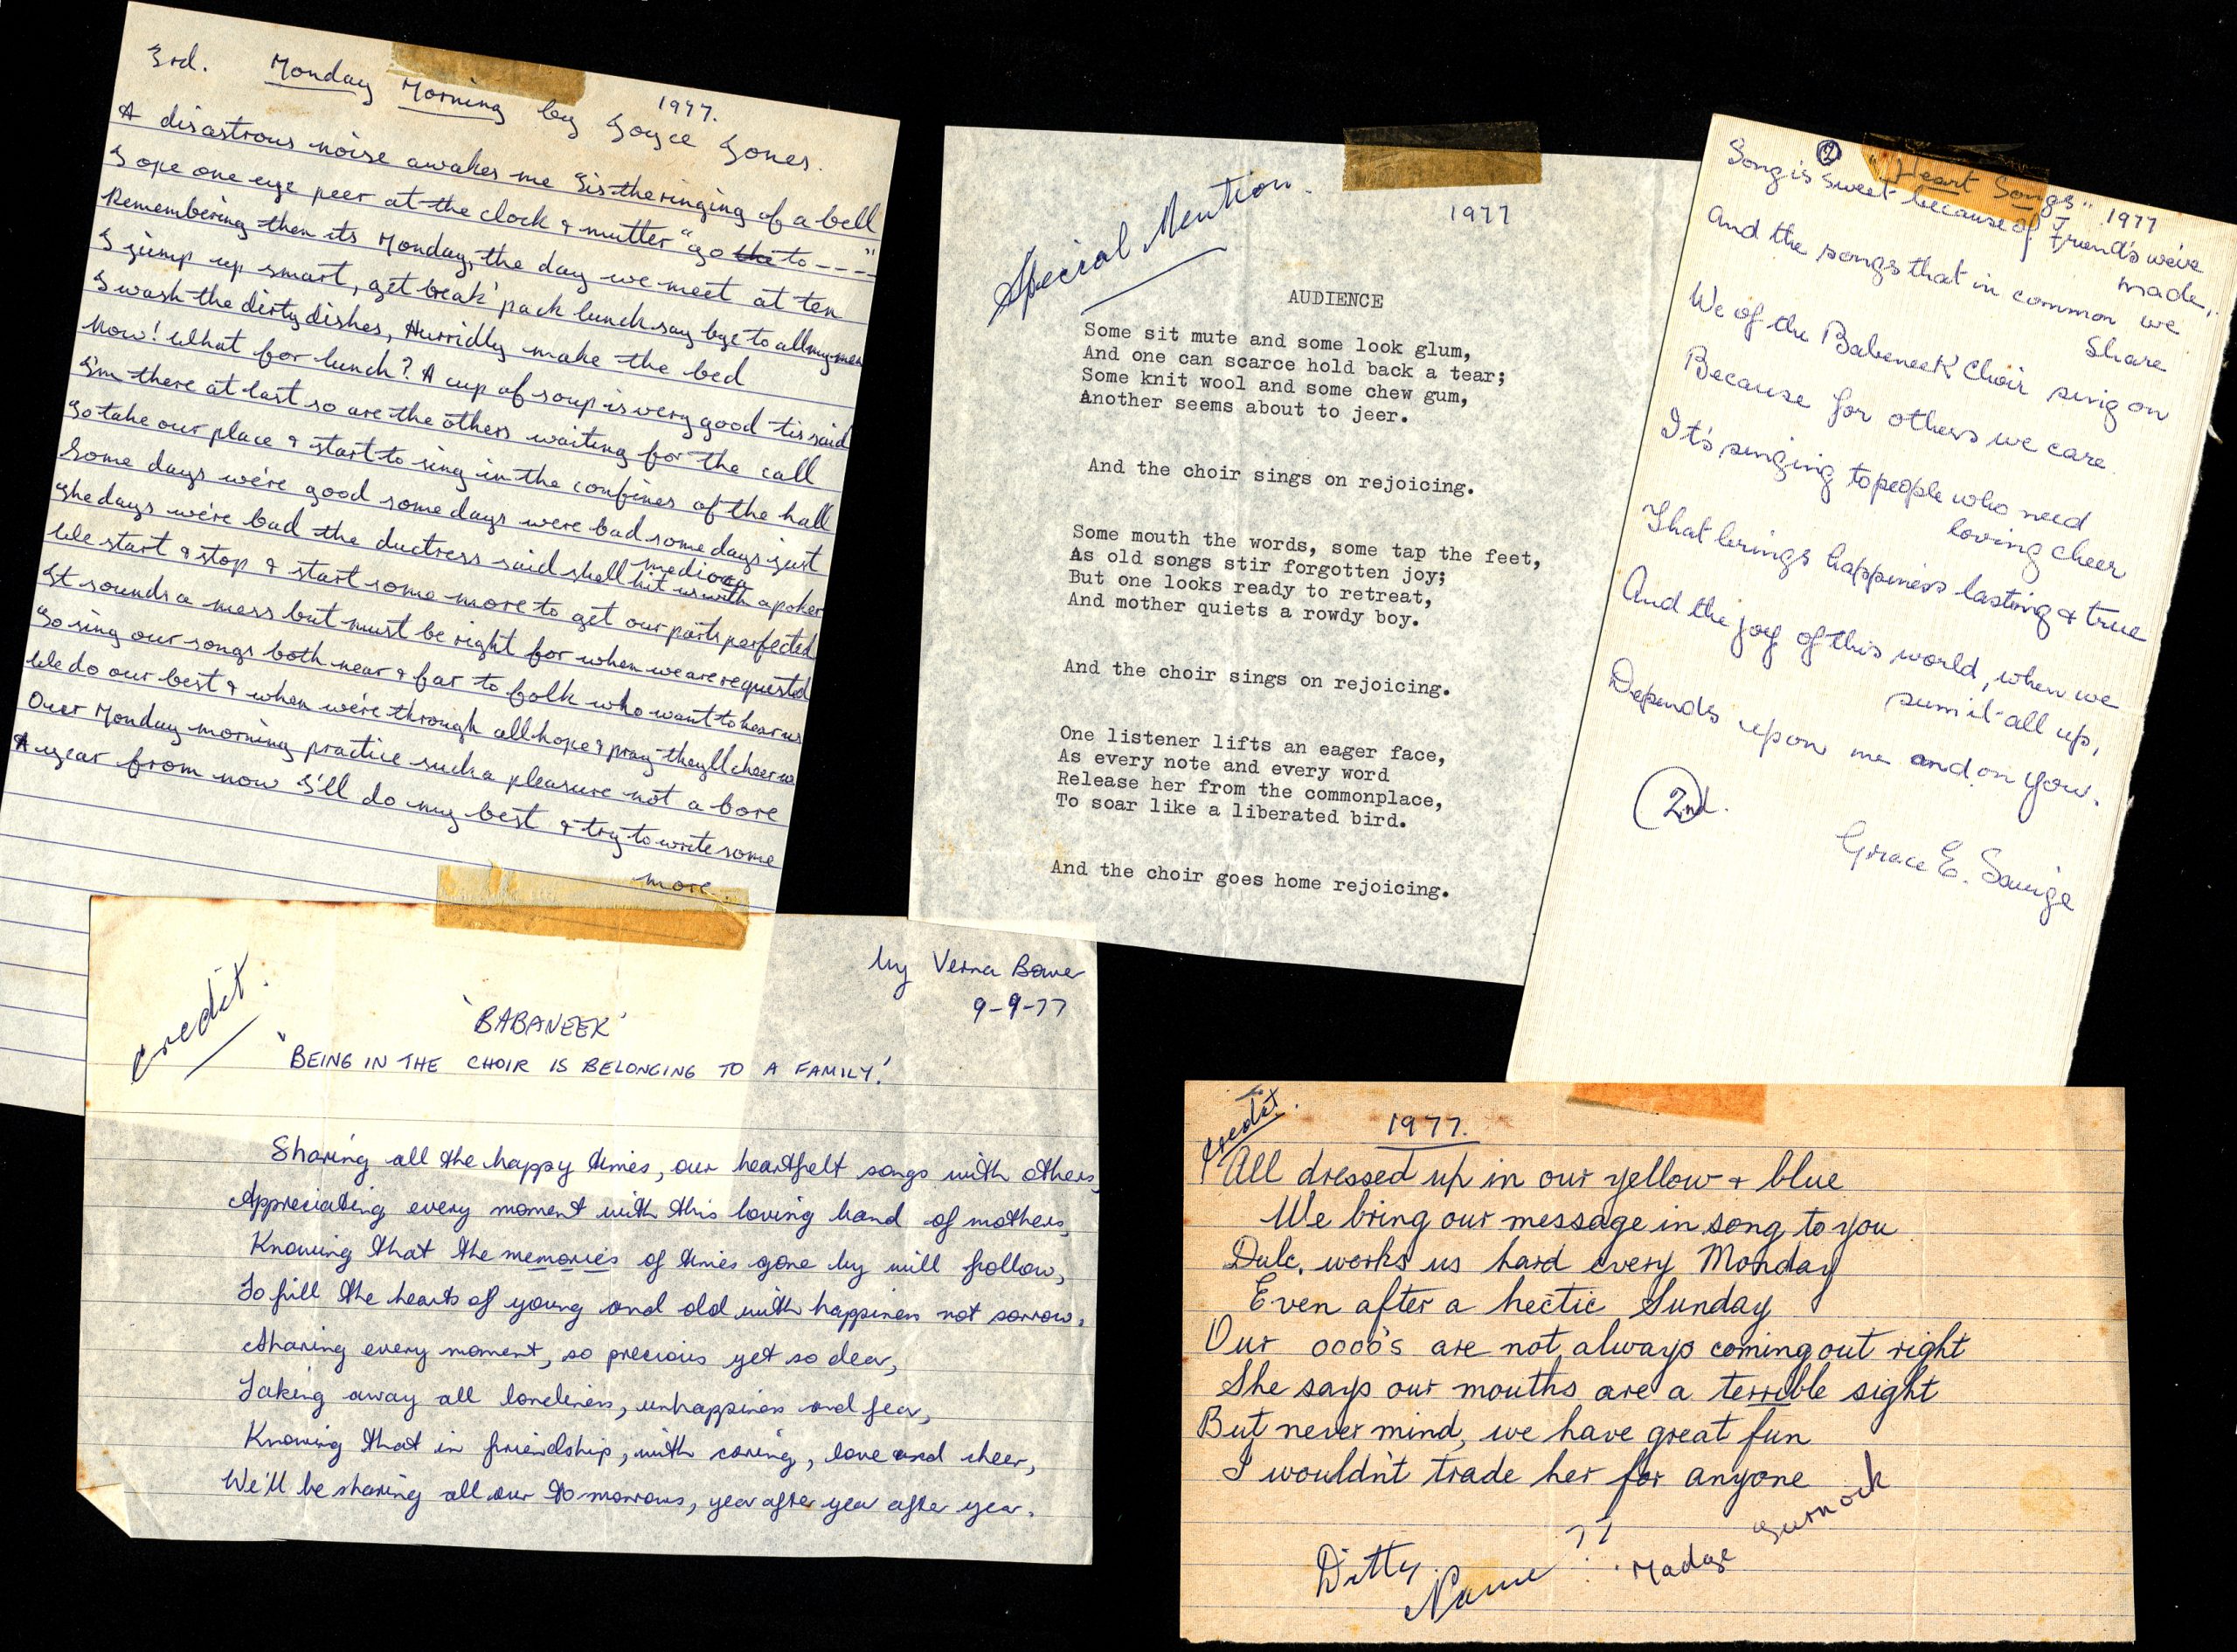 3rd. Monday Morning by Joyce Jones. 1977.
A disastrous noise awakes me Tis the ringing of a bell
I ope one eye peer at the clock & mutter "go the to ----"
Remembering then its Monday, the day we meet at ten
I jump up smart, get break' pack lunch say bye to all my men
I wash the dirty dishes, Hurridly make the bed
Now! What for lunch? A cup of soup is very good tis said
I'm there at last so are the others waiting for the call
To take our place & start to sing in the confines of the hall
Some days we're good some days were bad some days just medioca
The days we're bad the ductress said shell hit us with a poker
We start & stop & start some more to get our parts perfected
It sounds a mess but must be right for when we are requested
To sing our songs both near & far to folk who want to hear us
We do our best & when we're through all hope & pray they'll cheer us
Our Monday morning practice such a pleasure not a bore
A year from now I'll do my best & try to write some
more.
Special Mention.
1977
AUDIENCE
Some sit mute and some look glum,
And one can scarce hold back a tear;
Some knit wool and some chew gum,
Another seems about to jeer.
And the choir sings on rejoicing.
Some mouth the words, some tap the feet,
As old songs stir forgotten joy;
But one looks ready to retreat,
And mother quiets a rowdy boy.
And the choir sings on rejoicing.
One listener lifts an eager face,
As every note and every word
Release her from the commonplace,
To soar like a liberated bird.
And the choir goes home rejoicing.
2 "Heart Songs" 1977
Song is sweet because of Friends we've
made,
And the songs that in common we
Share
We of the Babeneek Choir sing on
Because for others we care.
It's singing to people who need
loving cheer
That brings happiness lasting & true
And the joy of this world, when we
sum it all up,
Depends upon me and on you.
2nd.
Grace E. Savige
credit.
by Verna Bower
9-9-77
'BABANEEK'
"BEING IN THE CHOIR IS BELONGING TO A FAMILY!
Sharing all the happy times, our heartfelt songs with others,
Appreciating every moment with this loving band of mothers,
Knowing that the memories of times gone by will follow,
To fill the hearts of young and old with happiness not sorrow.
Sharing every moment, so precious yet so dear,
Taking away all loneliness, unhappiness and fear,
Knowing that in friendship, with caring, love and cheer,
We'll be sharing all our tomorrows, year after year after year.
Credit.
1977.
All dressed up in our yellow & blue
We bring our message in song to you
Dulc. works us hard every Monday
Even after a hectic Sunday
Our oooo's are not always coming out right
She says our mouths are a terrible sight
But never mind, we have great fun
I wouldn't trade her for anyone
Ditty.
Name ?? Madge Gurnock